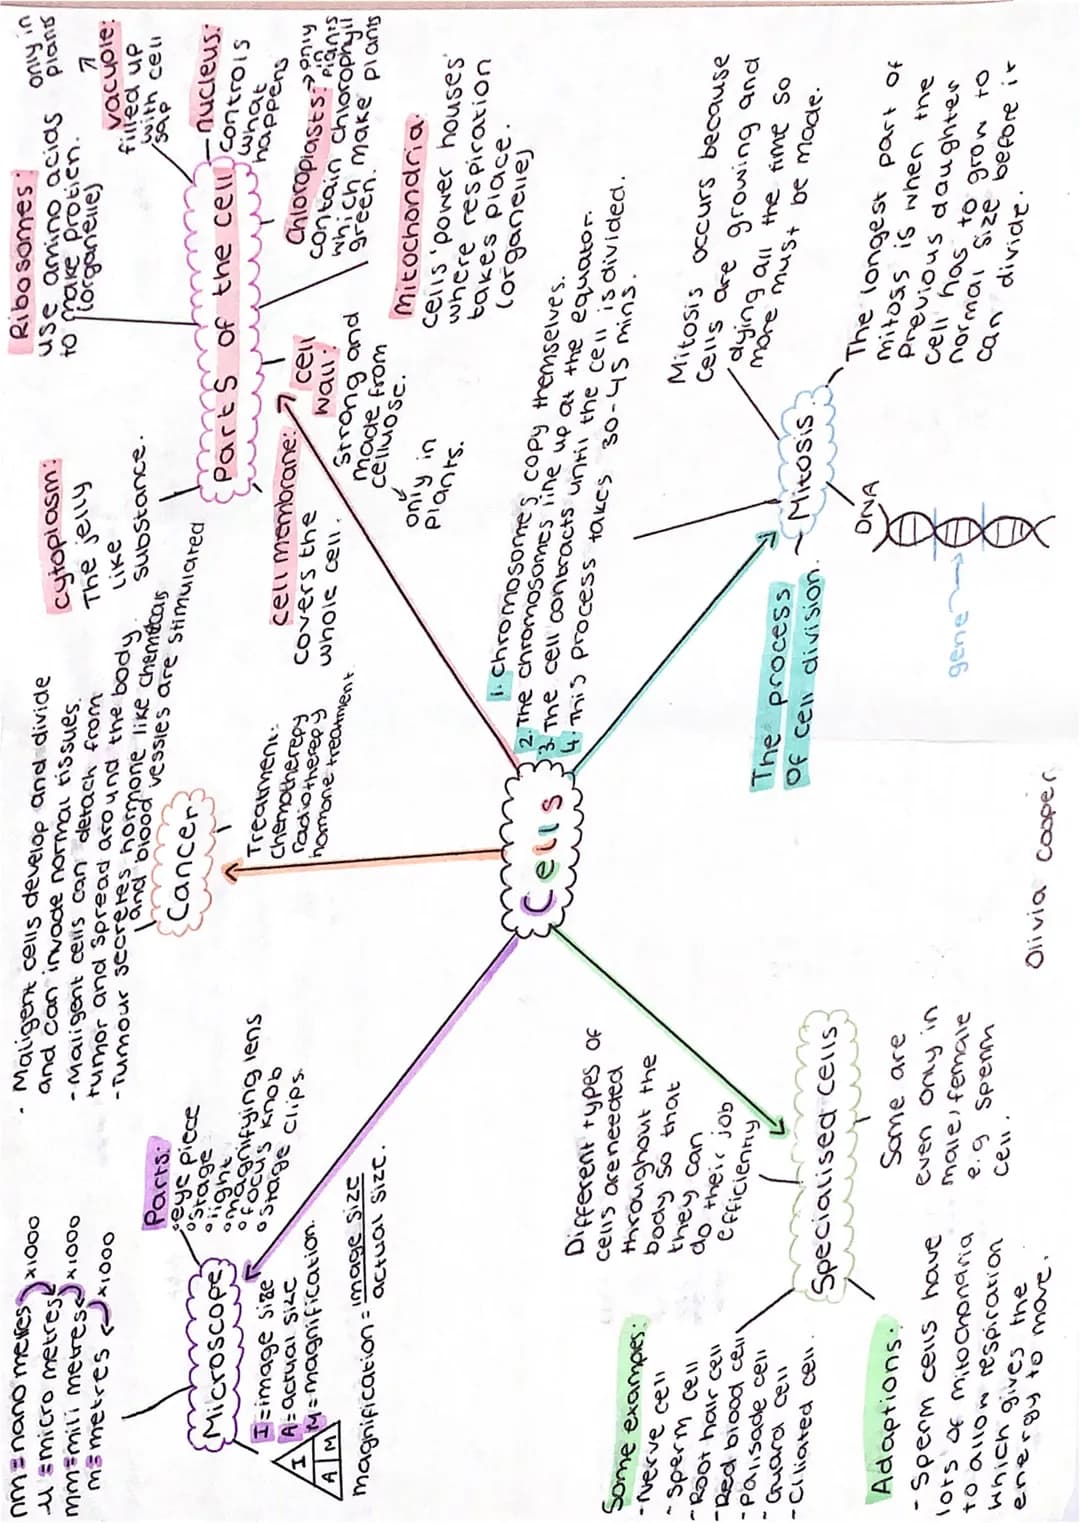 nm = nano metres ×1000
µ = micro metres ×1000
mm = mili metres ×1000
m = metres
Microscope
Parts:
° eye piece
° stage
° light
° magnifying lens
° focus knob
° stage clips.
I = image size
A = actual size
M = magnification.
I
A M
magnification = image size
actual size.
- Maligent cells develop and divide
and can invade normal tissues.
- Maligent cells can detach from
tumor and spread around the body.
- Tumour secretes hormone like chemicals
and blood vessles are stimulated
Cancer
Treatment:
Chemotherepy
radiotherepy
homone treatment
Parts of the cell
Cytoplasm:
The jelly
like
substance.
Ribosomes:
use amino acids
to make protien.
(organelle)
only in
plants
vacuole:
filled up
with cell
sap
nucleus:
controls
what
happens
Chloroplasts: → only
in plants
contain chlorophyll
which make plants
green.
Mitochondria:
cells 'power houses'
where respiration
takes place.
(organelle)
cell
wall:
strong and
made from
cellulose.
only in
plants.
cell membrane:
covers the
whole cell.
Cells
1. Chromosomes copy themselves.
2. The chromosomes line up at the equator.
3. The cell contracts until the cell is divided.
4. This process takes 30-45 mins.
Mitosis
The process
of cell division.
Mitosis occurs because
cells are growing and
dying all the time so
more must be made.
The longest part of
mitosis is when the
previous daughter
cell has to grow to
normal size before it
can divide.
DNA
gene
Specialised cells
Different types of
cells are needed
throughout the
body so that
they can
do their job
efficiently
Some examples:
- Nerve cell
- Sperm cell
- Root hair cell
- Red blood cell
- Palisade cell
- Guard cell
- Ciliated cell.
Adaptions:
- Sperm cells have
lots of mitochondria
to allow respiration
which gives the
energy to move.
Some are
even only in
male/female
e.g sperm
cell.
Olivia Cooper